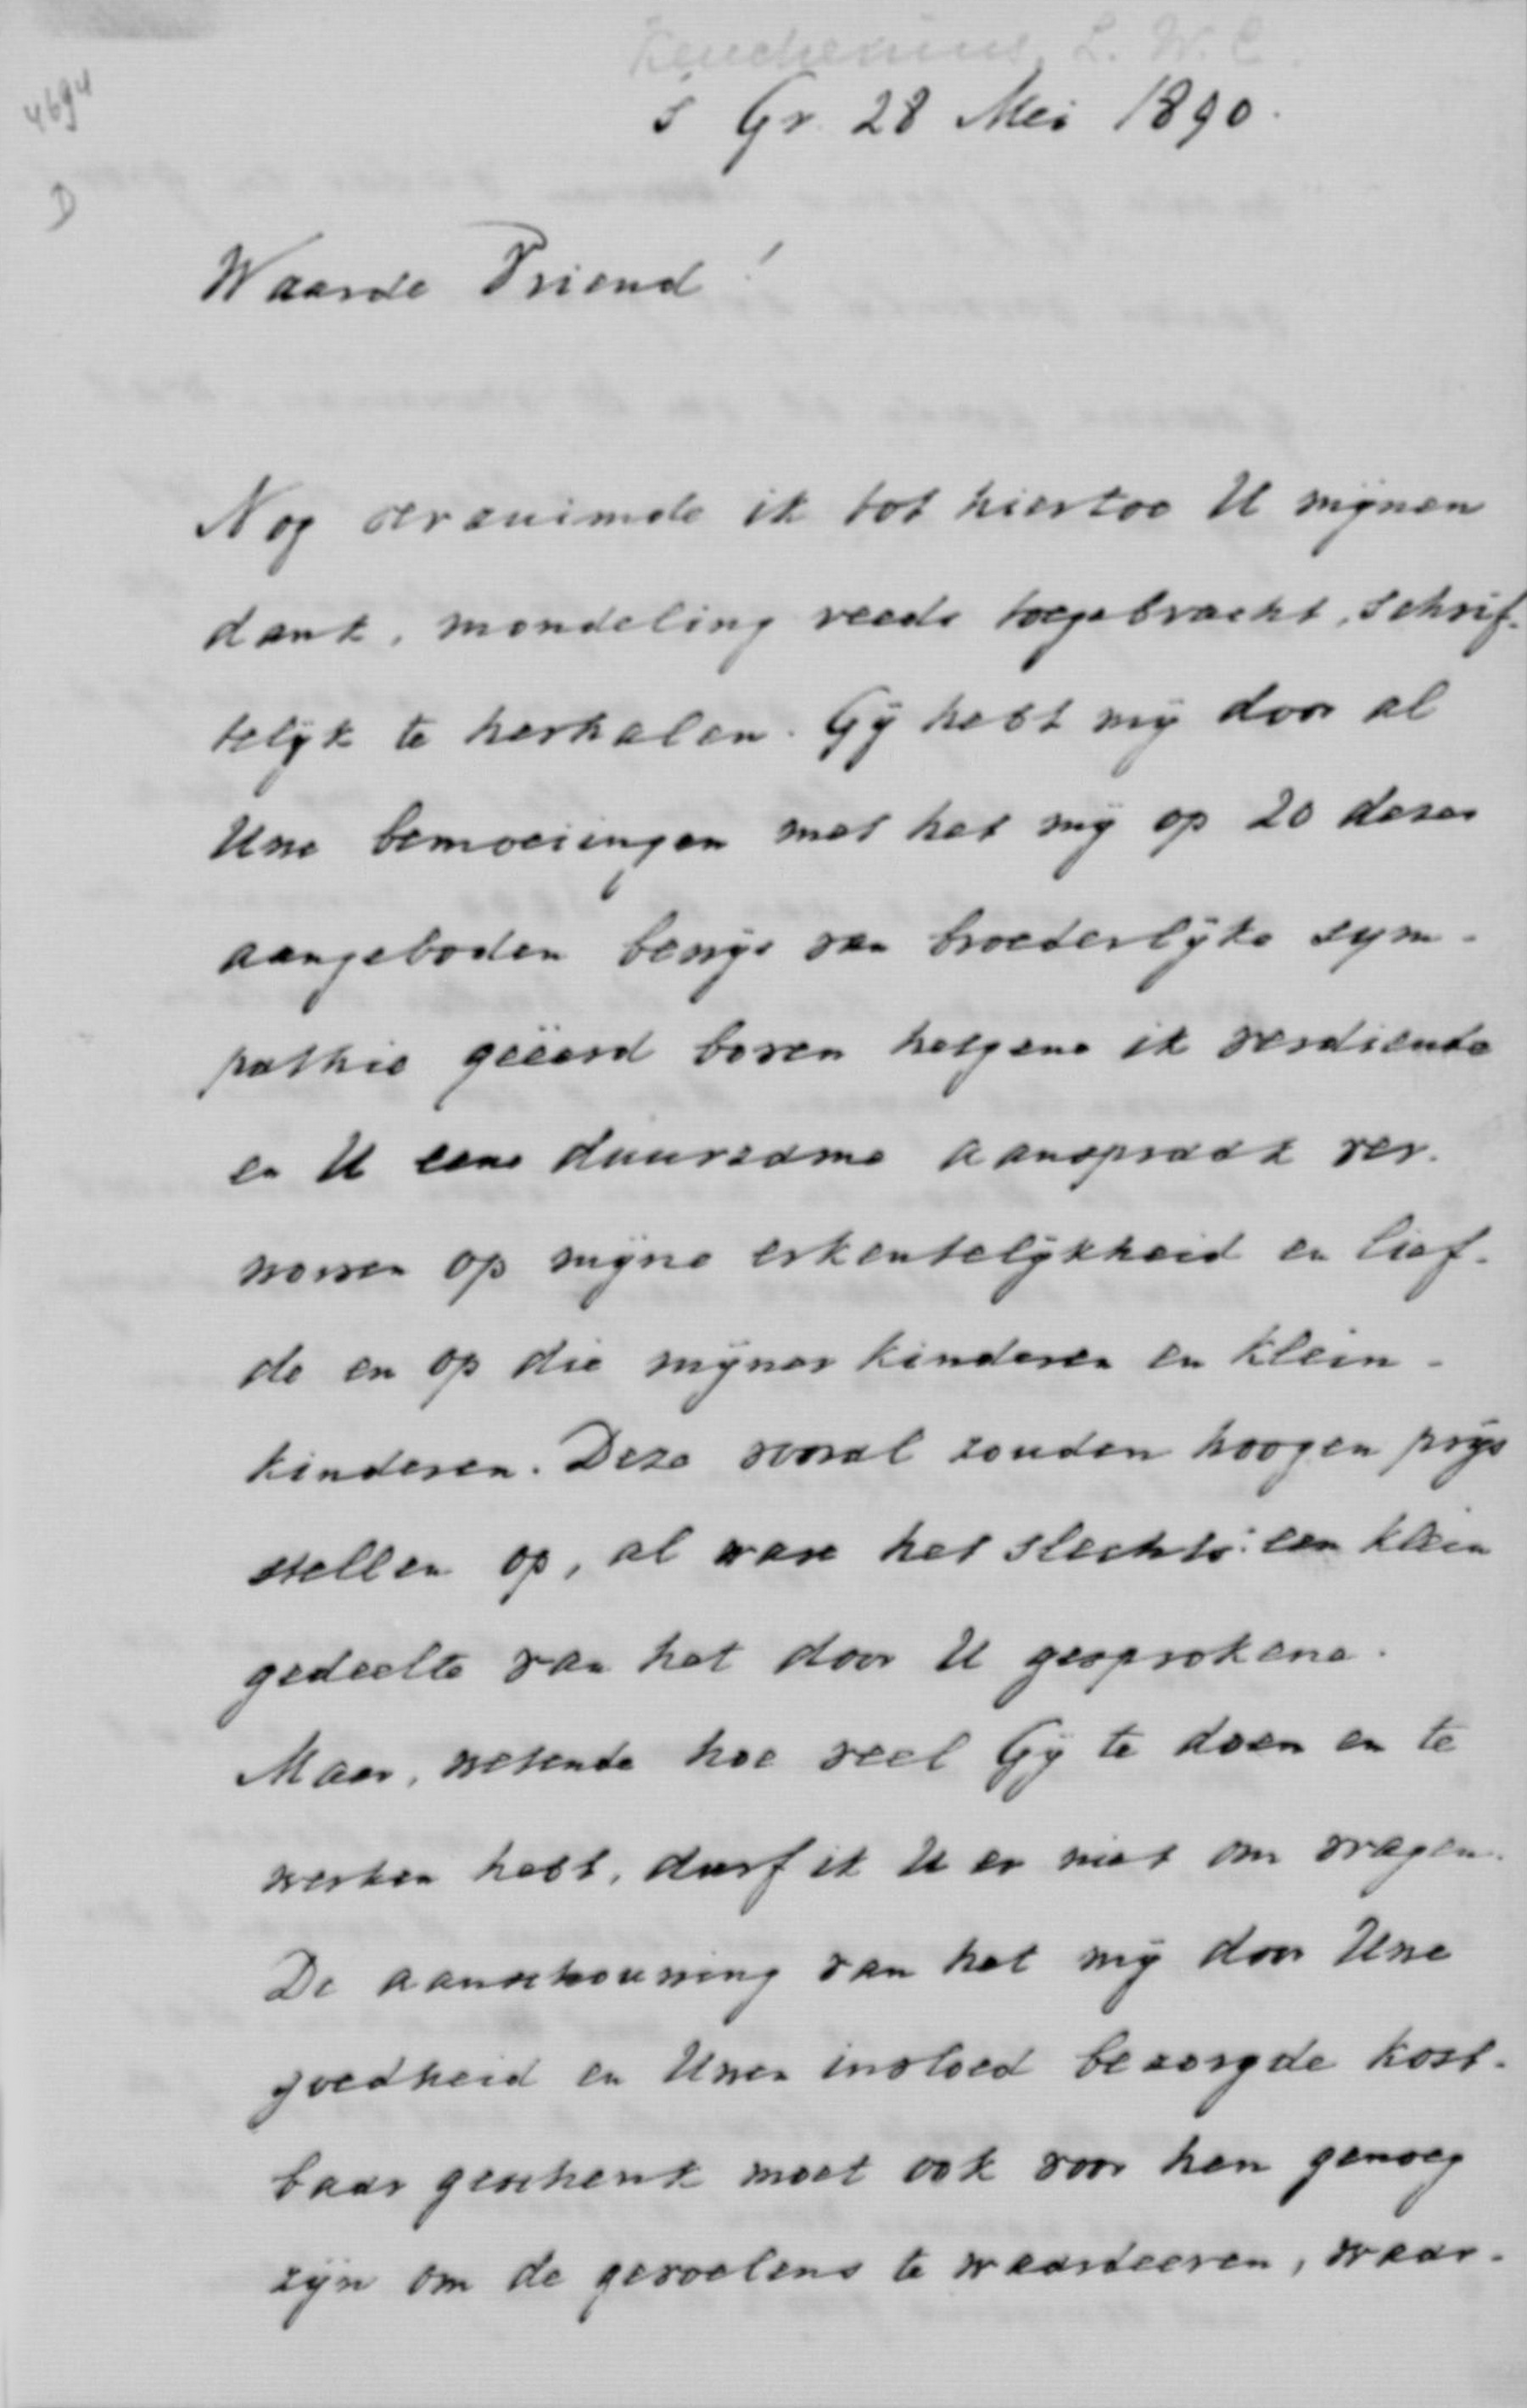 Keuchenius, L. W. C.
4694
D
s Gr. 28 Mei 1890.
Waarde Vriend!
Nog verzuimde ik tot hiertoe U mijnen
dank, mondeling reeds toegebracht, schrif-
telijk te herhalen. Gij hebt mij door al
Uwe bemoeiingen met het mij op 20 dezer
aangeboden bewijs van broederlijke sym-
pathie geëerd boven hetgene ik verdiende
en U eene duurzame aanspraak ver-
worven op mijne erkentelijkheid en lief-
de en op die mijner kinderen en klein-
kinderen. Deze vooral zouden hoogen prijs
stellen op, al ware het slechts een klein
gedeelte van het door U gesprokene.
Maar, wetende hoe veel Gij te doen en te
werken hebt, durf ik U er niet om vragen.
De aanschouwing van het mij door Uwe
goedheid en Uwen invloed bezorgde kost-
baar geschenk moet ook voor hen genoeg
zijn om de gevoelens te waardeeren, waar-